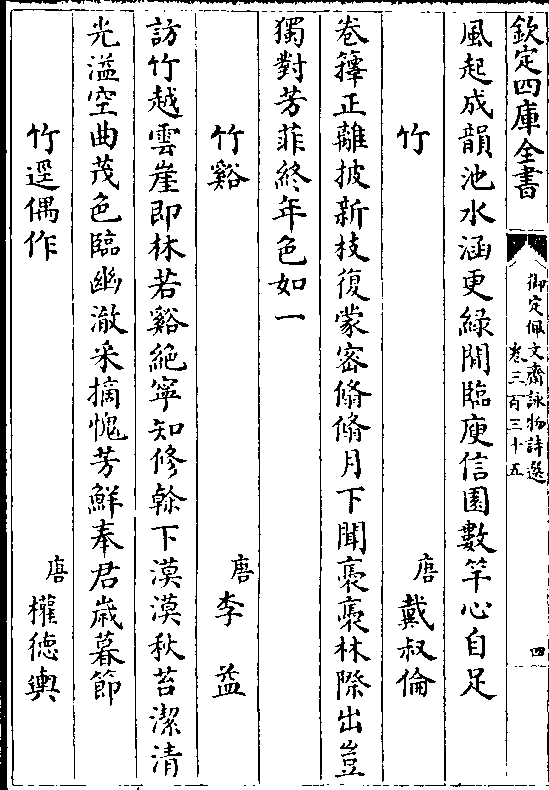 欽定四庫全書
御定佩文齋詠物詩選
卷三百三十五
四
風起成韻池水涵更綠閒臨庾信園數竿心自足
竹 唐 戴叔倫
卷籜正離披新枝復蒙密翛翛月下聞裊裊林際出豈
獨對芳菲終年色如一
竹谿 唐 李益
訪竹越雲崖即林若谿絕寧知修榦下漠漠秋苔潔清
光溢空曲茂色臨幽澈采摘愧芳鮮奉君歲暮節
竹逕偶作 唐 權德輿